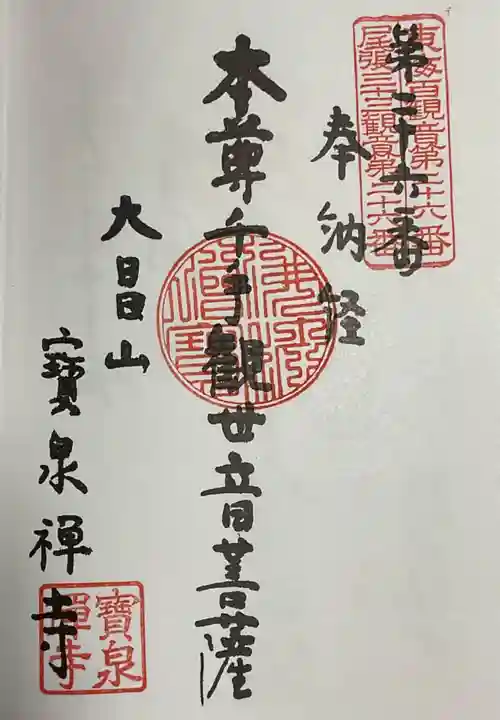 東海百觀音第二十六番
尾張三十三觀音第二十六番
第二十六番
奉納経
本尊千手觀世音菩薩
大昌山
寶泉禅寺
寶泉
禅寺